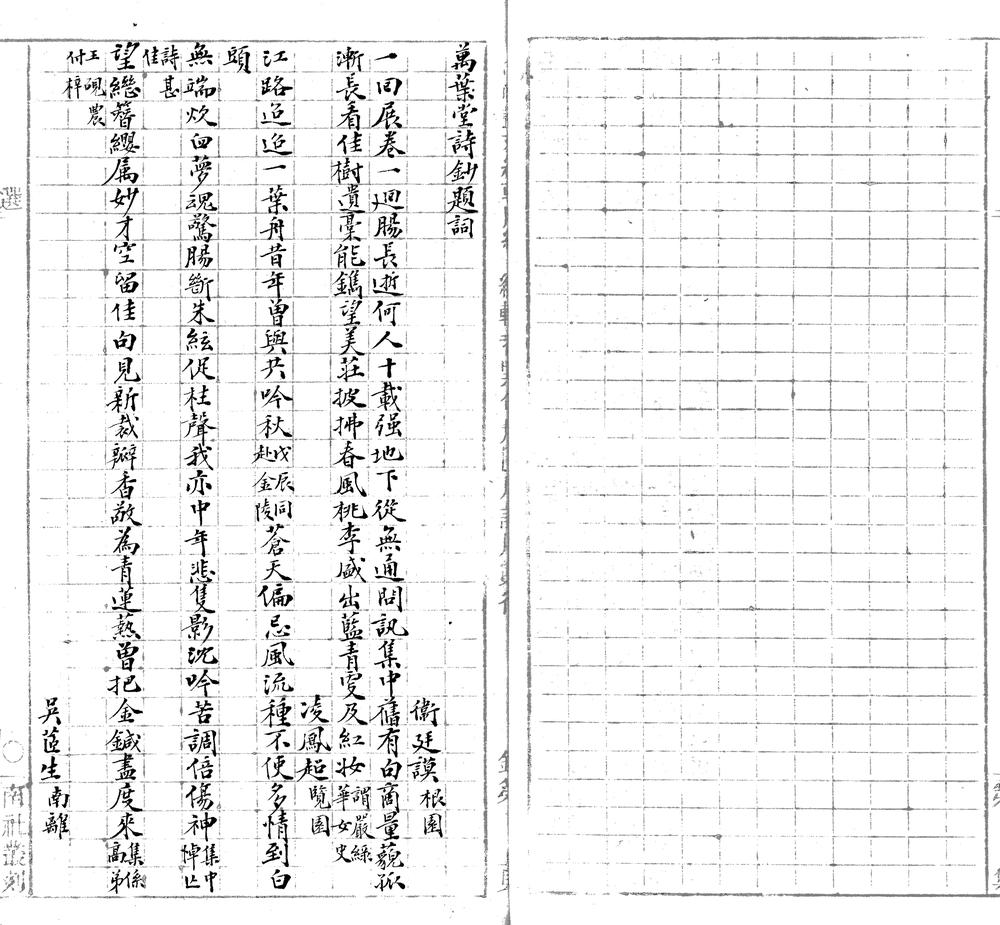 萬葉堂詩鈔題詞
衞廷謨根園
一回展卷一迴腸長逝何人十載强地下從無通問訊集中舊有句商量藐孤
漸長看佳樹遺稾能鐫望美莊披拂春風桃李盛出藍青雯及紅妝謂嚴綠華女史
凌鳳超覽園
江路迢迢一葉舟昔年曾與共吟秋戊辰同赴金陵蒼天偏忌風流種不使多情到白
頭
無端炊臼夢魂驚腸斷朱絃促柱聲我亦中年悲隻影沈吟苦調倍傷神集中悼亡
詩甚佳
望繼簪纓属妙才空留佳句見新裁瓣香敬為青蓮爇曾把金鍼盡度來集係高弟
王硯農付梓
吳茝生南離
選
南社叢刻